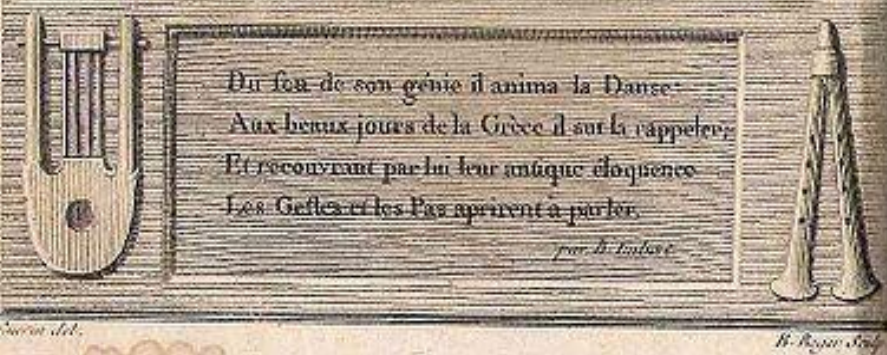 Du feu de son génie il anima la Danse:
Aux beaux jours de la Grèce il sut la rappeler;
Et recouvrant par lui leur antique éloquence
Les Gestes et les Pas aprirent à parler.
par B. Imbert
Guerin del.
B. Roger Sculp